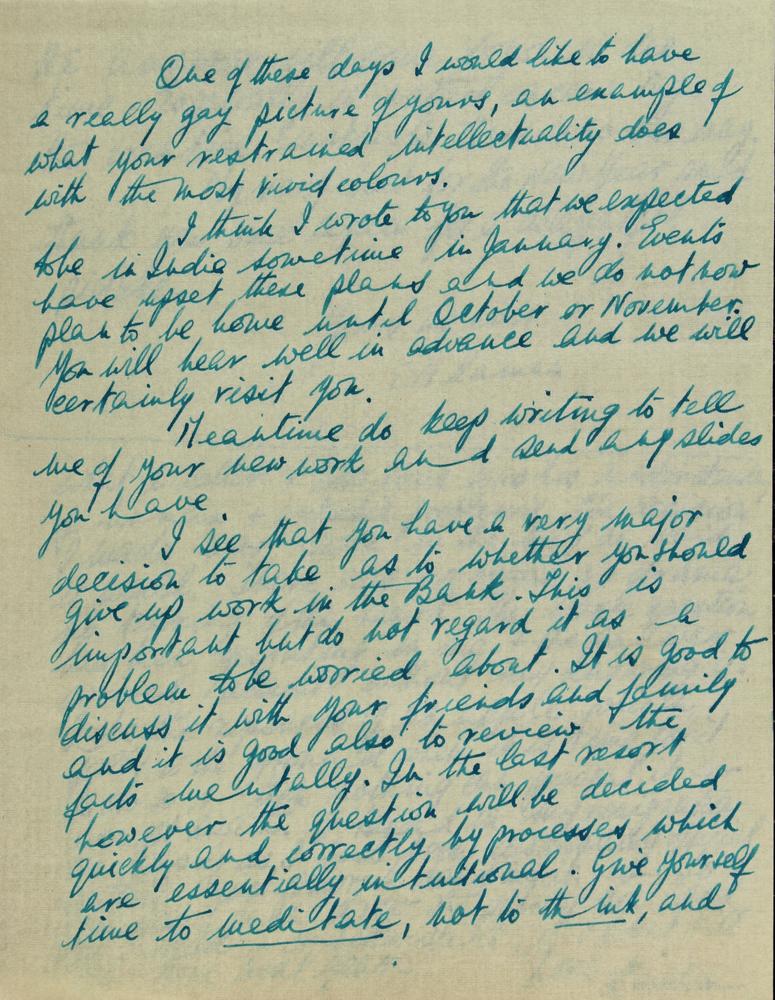 One of these days I would like to have
a really gay picture of yours, an example of
what your restrained intellectuality does
with the most vivid colours.
I think I wrote to you that we expected
to be in India sometime in January. Events
have upset these plans and we do not now
plan to be home until October or November.
You will hear well in advance and we will
certainly visit you.
Meantime do keep writing to tell
me of your new work and send any slides
you have
I see that you have a very major
decision to take as to whether you should
give up work in the Bank. This is
important but do not regard it as a
problem to be worried about. It is good to
discuss it with your friends and family
and it is good also to review the
facts mentally. In the last resort
however the question will be decided
quickly and correctly by processes which
are essentially intuitional. Give yourself
time to meditate, not to think, and